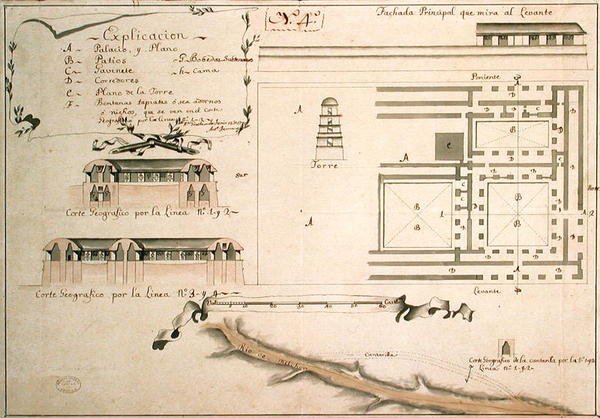 Explicacion
A ~ Palacio, y Plano
B ~ Patios
C ~ Gavinete
D ~ Corredores
E ~ Plano de la Torre
F ~ Bentanas tapiadas ó sea adornos
ó nichos, que se ven en el corte
Geografico por la Linea Nº 1. y 2.
G. Bobedas Subterraneas
h ~ Cama
Nº. 4º.
Fachada Principal que mira al Levante
Poniente
A
A
Torre
A
E
B
D
B
B
Sur
Norte
Levante
Corte Geografico por la Linea Nº. 1. y 2 ~
Corte Geografico por la Linea Nº. 3. y 4 ~
10 20 30 40 50
Rio de
Cañería
Corte Geografico de la
Linea nº. 1. y 2.